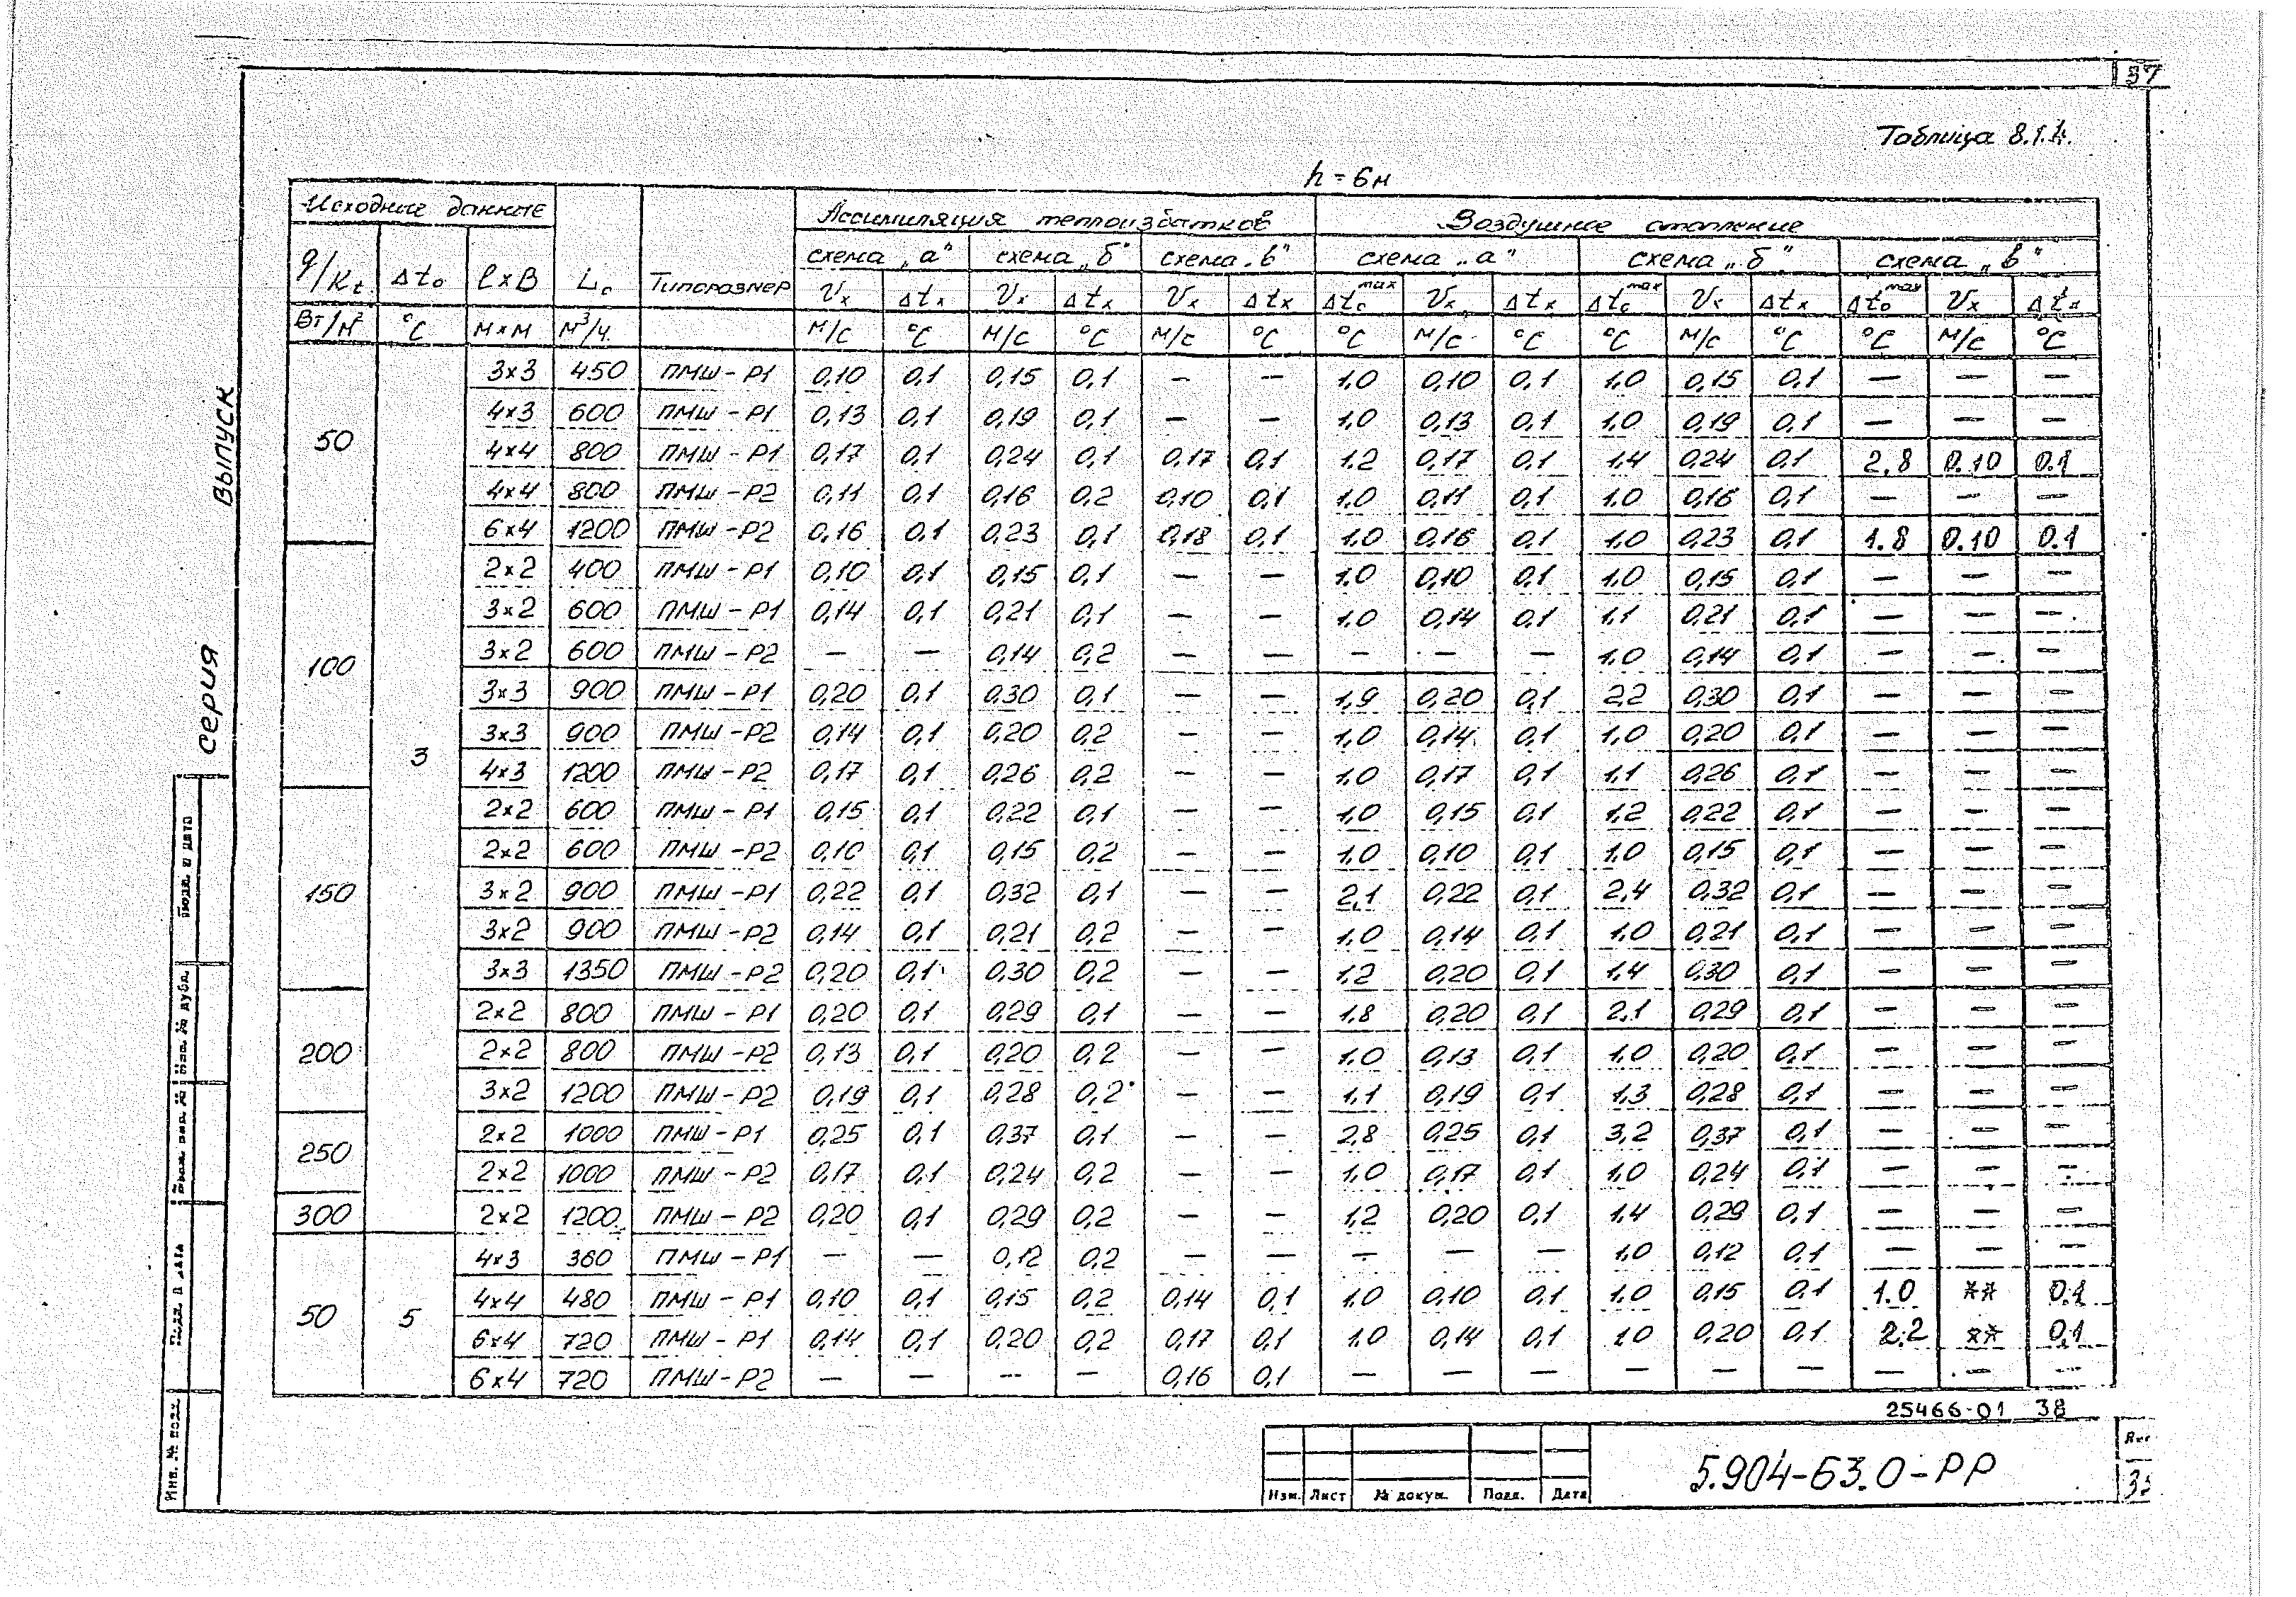 37
Таблица 8.1.4.
h = 6м
Исходные данные Lо Типоразмер Ассимиляция теплоизбытков Воздушное отопление
схема „а" схема „б" схема „в" схема „а" схема „б" схема „в"
q/Kt Δto l×B Vx Δtx Vx Δtx Vx Δtx Δto max Vx Δtx Δto max Vx Δtx Δto max Vx Δtx
Вт/м² °С м×м м³/ч м/с °С м/с °С м/с °С °С м/с °С °С м/с °С °С м/с °С
50 3 3×3 450 ПМШ-Р1 0,10 0,1 0,15 0,1 — — 1,0 0,10 0,1 1,0 0,15 0,1 — — —
4×3 600 ПМШ-Р1 0,13 0,1 0,19 0,1 — — 1,0 0,13 0,1 1,0 0,19 0,1 — — —
4×4 800 ПМШ-Р1 0,17 0,1 0,24 0,1 0,17 0,1 1,2 0,17 0,1 1,4 0,24 0,1 2,8 0.10 0.1
4×4 800 ПМШ-Р2 0,11 0,1 0,16 0,2 0,10 0,1 1,0 0,11 0,1 1,0 0,16 0,1 — — —
6×4 1200 ПМШ-Р2 0,16 0,1 0,23 0,1 0,18 0,1 1,0 0,16 0,1 1,0 0,23 0,1 1.8 0.10 0.1
100 2×2 400 ПМШ-Р1 0,10 0,1 0,15 0,1 — — 1,0 0,10 0,1 1,0 0,15 0,1 — — —
3×2 600 ПМШ-Р1 0,14 0,1 0,21 0,1 — — 1,0 0,14 0,1 1,1 0,21 0,1 — — —
3×2 600 ПМШ-Р2 — — 0,14 0,2 — — — — — 1,0 0,14 0,1 — — —
3×3 900 ПМШ-Р1 0,20 0,1 0,30 0,1 — — 1,9 0,20 0,1 2,2 0,30 0,1 — — —
3×3 900 ПМШ-Р2 0,14 0,1 0,20 0,2 — — 1,0 0,14 0,1 1,0 0,20 0,1 — — —
4×3 1200 ПМШ-Р2 0,17 0,1 0,26 0,2 — — 1,0 0,17 0,1 1,1 0,26 0,1 — — —
150 2×2 600 ПМШ-Р1 0,15 0,1 0,22 0,1 — — 1,0 0,15 0,1 1,2 0,22 0,1 — — —
2×2 600 ПМШ-Р2 0,10 0,1 0,15 0,2 — — 1,0 0,10 0,1 1,0 0,15 0,1 — — —
3×2 900 ПМШ-Р1 0,22 0,1 0,32 0,1 — — 2,1 0,22 0,1 2,4 0,32 0,1 — — —
3×2 900 ПМШ-Р2 0,14 0,1 0,21 0,2 — — 1,0 0,14 0,1 1,0 0,21 0,1 — — —
3×3 1350 ПМШ-Р2 0,20 0,1 0,30 0,2 — — 1,2 0,20 0,1 1,4 0,30 0,1 — — —
200 2×2 800 ПМШ-Р1 0,20 0,1 0,29 0,1 — — 1,8 0,20 0,1 2,1 0,29 0,1 — — —
2×2 800 ПМШ-Р2 0,13 0,1 0,20 0,2 — — 1,0 0,13 0,1 1,0 0,20 0,1 — — —
3×2 1200 ПМШ-Р2 0,19 0,1 0,28 0,2 — — 1,1 0,19 0,1 1,3 0,28 0,1 — — —
250 2×2 1000 ПМШ-Р1 0,25 0,1 0,37 0,1 — — 2,8 0,25 0,1 3,2 0,37 0,1 — — —
2×2 1000 ПМШ-Р2 0,17 0,1 0,24 0,2 — — 1,0 0,17 0,1 1,0 0,24 0,1 — — —
300 2×2 1200 ПМШ-Р2 0,20 0,1 0,29 0,2 — — 1,2 0,20 0,1 1,4 0,29 0,1 — — —
50 5 4×3 360 ПМШ-Р1 — — 0,12 0,2 — — — — — 1,0 0,12 0,1 — — —
4×4 480 ПМШ-Р1 0,10 0,1 0,15 0,2 0,14 0,1 1,0 0,10 0,1 1,0 0,15 0,1 1.0 ** 0.1
6×4 720 ПМШ-Р1 0,14 0,1 0,20 0,2 0,17 0,1 1,0 0,14 0,1 1,0 0,20 0,1 2.2 ** 0,1
6×4 720 ПМШ-Р2 — — — — 0,16 0,1 — — — — — — — — —
25466-01 38
Изм. Лист № докум. Подп. Дата
5.904-63.0-РР
серия выпуск
Подп. и дата
Инв. № дубл.
Взам. инв. №
Подп. и дата
Инв. № подл.